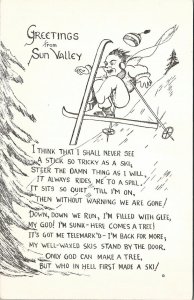 GREETINGS
from
SUN VALLEY
I THINK THAT I SHALL NEVER SEE
A STICK SO TRICKY AS A SKI,
STEER THE DAMN THING AS I WILL,
IT ALWAYS RIDES ME TO A SPILL,
IT SITS SO QUIET 'TILL I'M ON,
THEN WITHOUT WARNING WE ARE GONE!
DOWN, DOWN WE RUN, I'M FILLED WITH GLEE,
MY GOD! I'M SUNK - HERE COMES A TREE!
IT'S GOT ME TELEMARK'D - I'M BACK FOR MORE,
MY WELL-WAXED SKIS STAND BY THE DOOR,
ONLY GOD CAN MAKE A TREE,
BUT WHO IN HELL FIRST MADE A SKI!